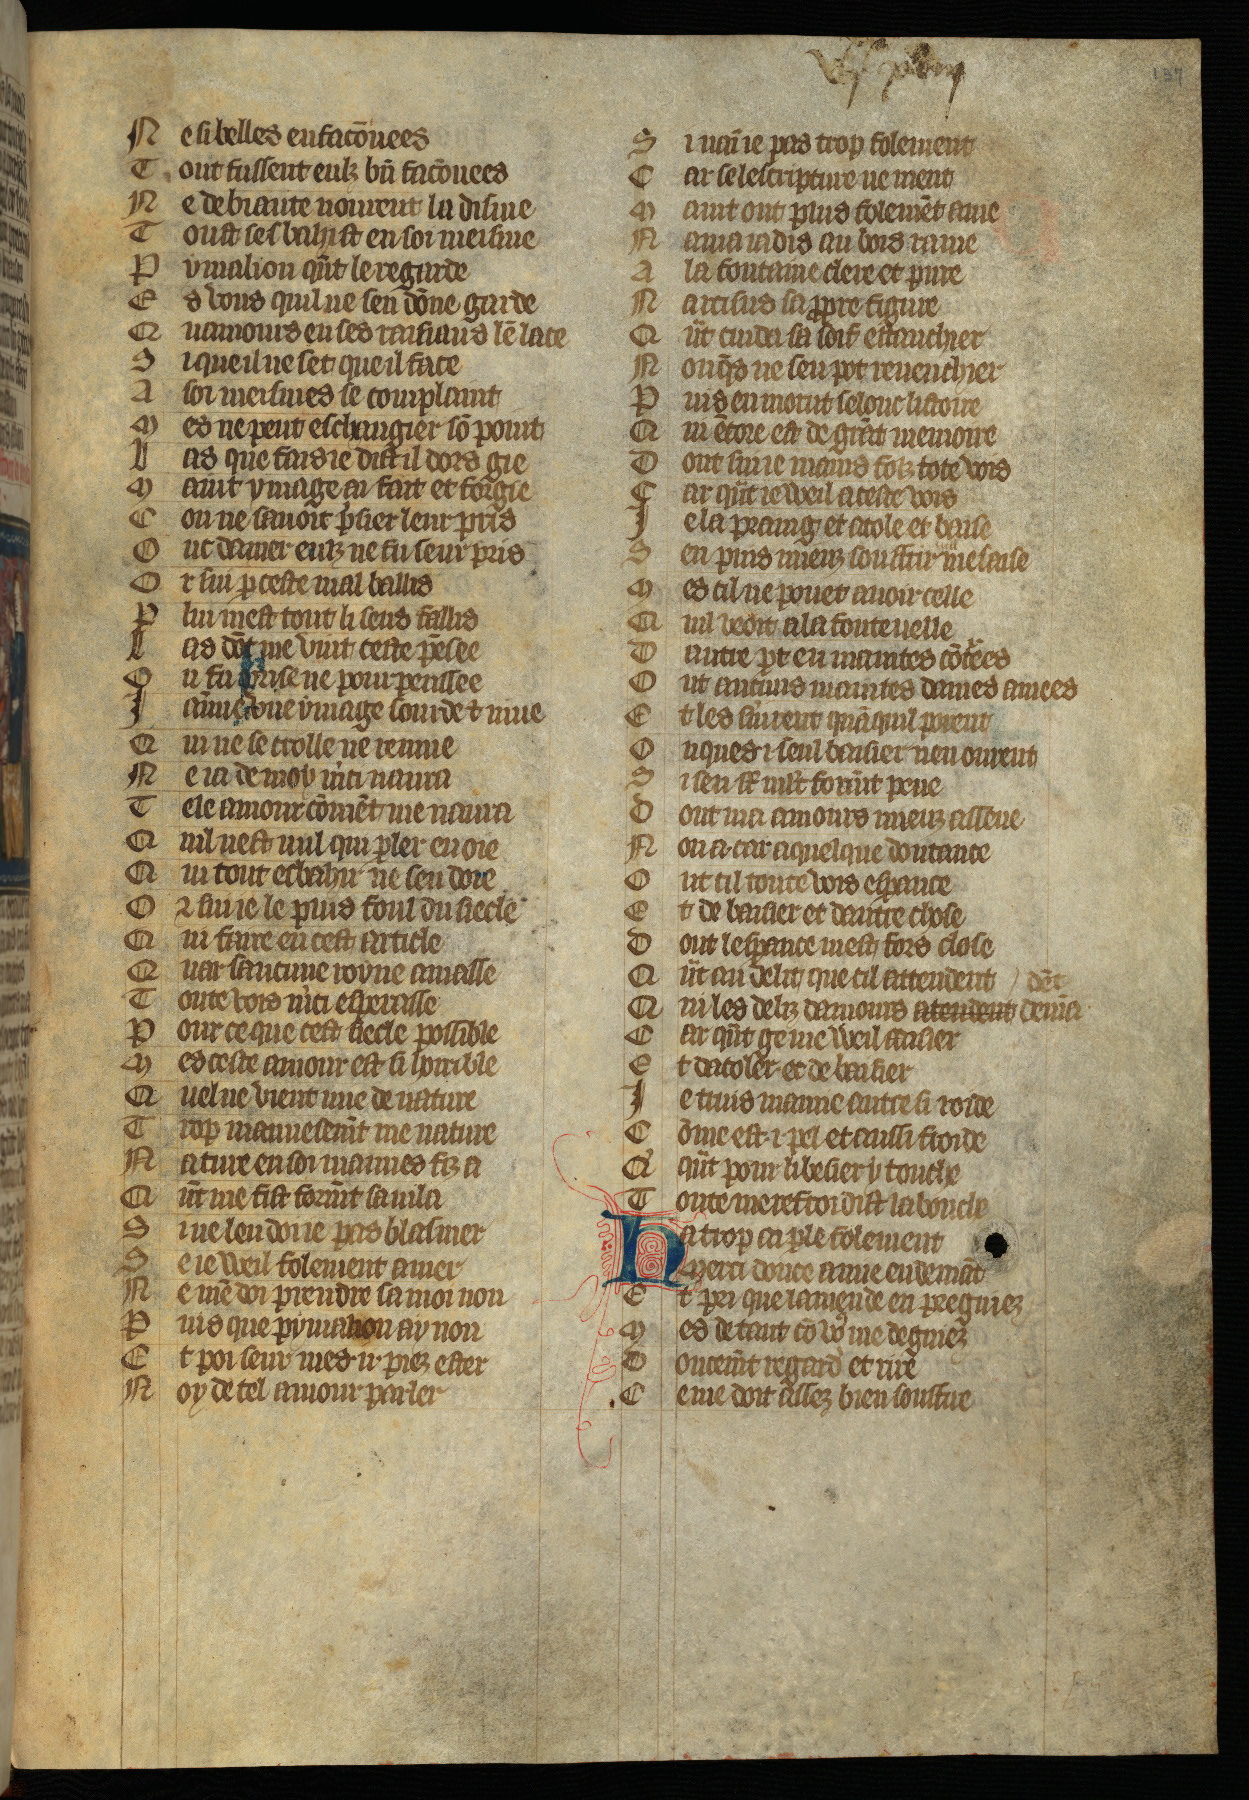 N e si belles en facōnees
T out fussent eulz bn̄ facōnees
N e de biaute noiuent la disme
T oust sesbahist en soi meisme
P ymalion qn̄t le regarde
E s vous quil ne sen dōne garde
Q uamours en ses raisiaus lē lace
S i que il ne set que il face
A soi meismes se complaint
M es ne peut eschangier sō point
L as que fais ie dist il dors gie
M aint ymage ai fait et forgie
C on ne sauoit p̄sier leur pris
O nc damer eulz ne fu seurpris
O r sui p ceste mal baillis
P lui mest tout li sens faillis
L as dōt me vint ceste pēsee
O u fu prise ne pourpenssee
J aime vne ymage sourde & mue
Q ui ne se crolle ne remue
N e ia de moy m̄ci naura
T ele amour cōmēt me naura
Q uil nest nul qui pler en oie
Q ui tout esbahir ne sen doie
O r sui ie le plus foul du siecle
Q ui faire en cest article
Q uar saucune royne amasse
T oute vois m̄ci esperasse
P our ce que cest siecle possible
M es ceste amour est si horrible
Q uel ne vient mie de nature
T rop mauuesemt̄ me nature
N ature en soi mauues filz a
Q n̄t me fist formt̄ sauila
S i ne len doi ie pas blasmer
S e ie weil folement amer
N e mē doi prendre sa moi non
P uis que pymalion ay non
E t poi seur mes .ii. piez ester
N oy de tel amour parler
S i nai ie pas trop folement
C ar se lescripture ne ment
M aint ont plus folemēt ame
N ama iadis au bois rame
A la fontaine clere et pure
N arcisus sa ppre figure
Q n̄t cuida sa soif estanchier
N onq̄s ne sen pot reuenchier
P uis en morut selonc listoire
Q ui ēcore est de grāt memoire
D ont sui ie mains folz tote vois
C ar qn̄t ie weil a ceste vois
J e la praing et acole et baise
S en puis miex souffrir mesaise
M es cil ne pouet auoir celle
Q uil veoit a la fontenelle
D autre pt en maintes cōtrees
O nt maintes dames amees
E t les siruent quāquil porent
O nques .i. seul baisier nen ourent
S i sen st m̄lt formt̄ pene
D ont ma amours mieuz assene
N on a car a quelque doutance
O nt cil toute vois espance
E t de baisier et dautre chose
D ont lespance mest fors close
Q n̄t au delit que cil attendent
Q ui les deliz damours atendent
C ar qn̄t ge me weil aaisier
E t dacoler et de baisier
J e truis mamie autresi roide
C ōme est .i. pel et aussi froide
Q qn̄t pour li besier y touche
T oute me refroidist la bouche
H a trop ai ple folement
Merci douce amie en demāt
E t pri que lamende en pregniez
M es de tant cō vo9 me degniez
D oucemt̄ regarder et rire
C e me doit assez bien souffire